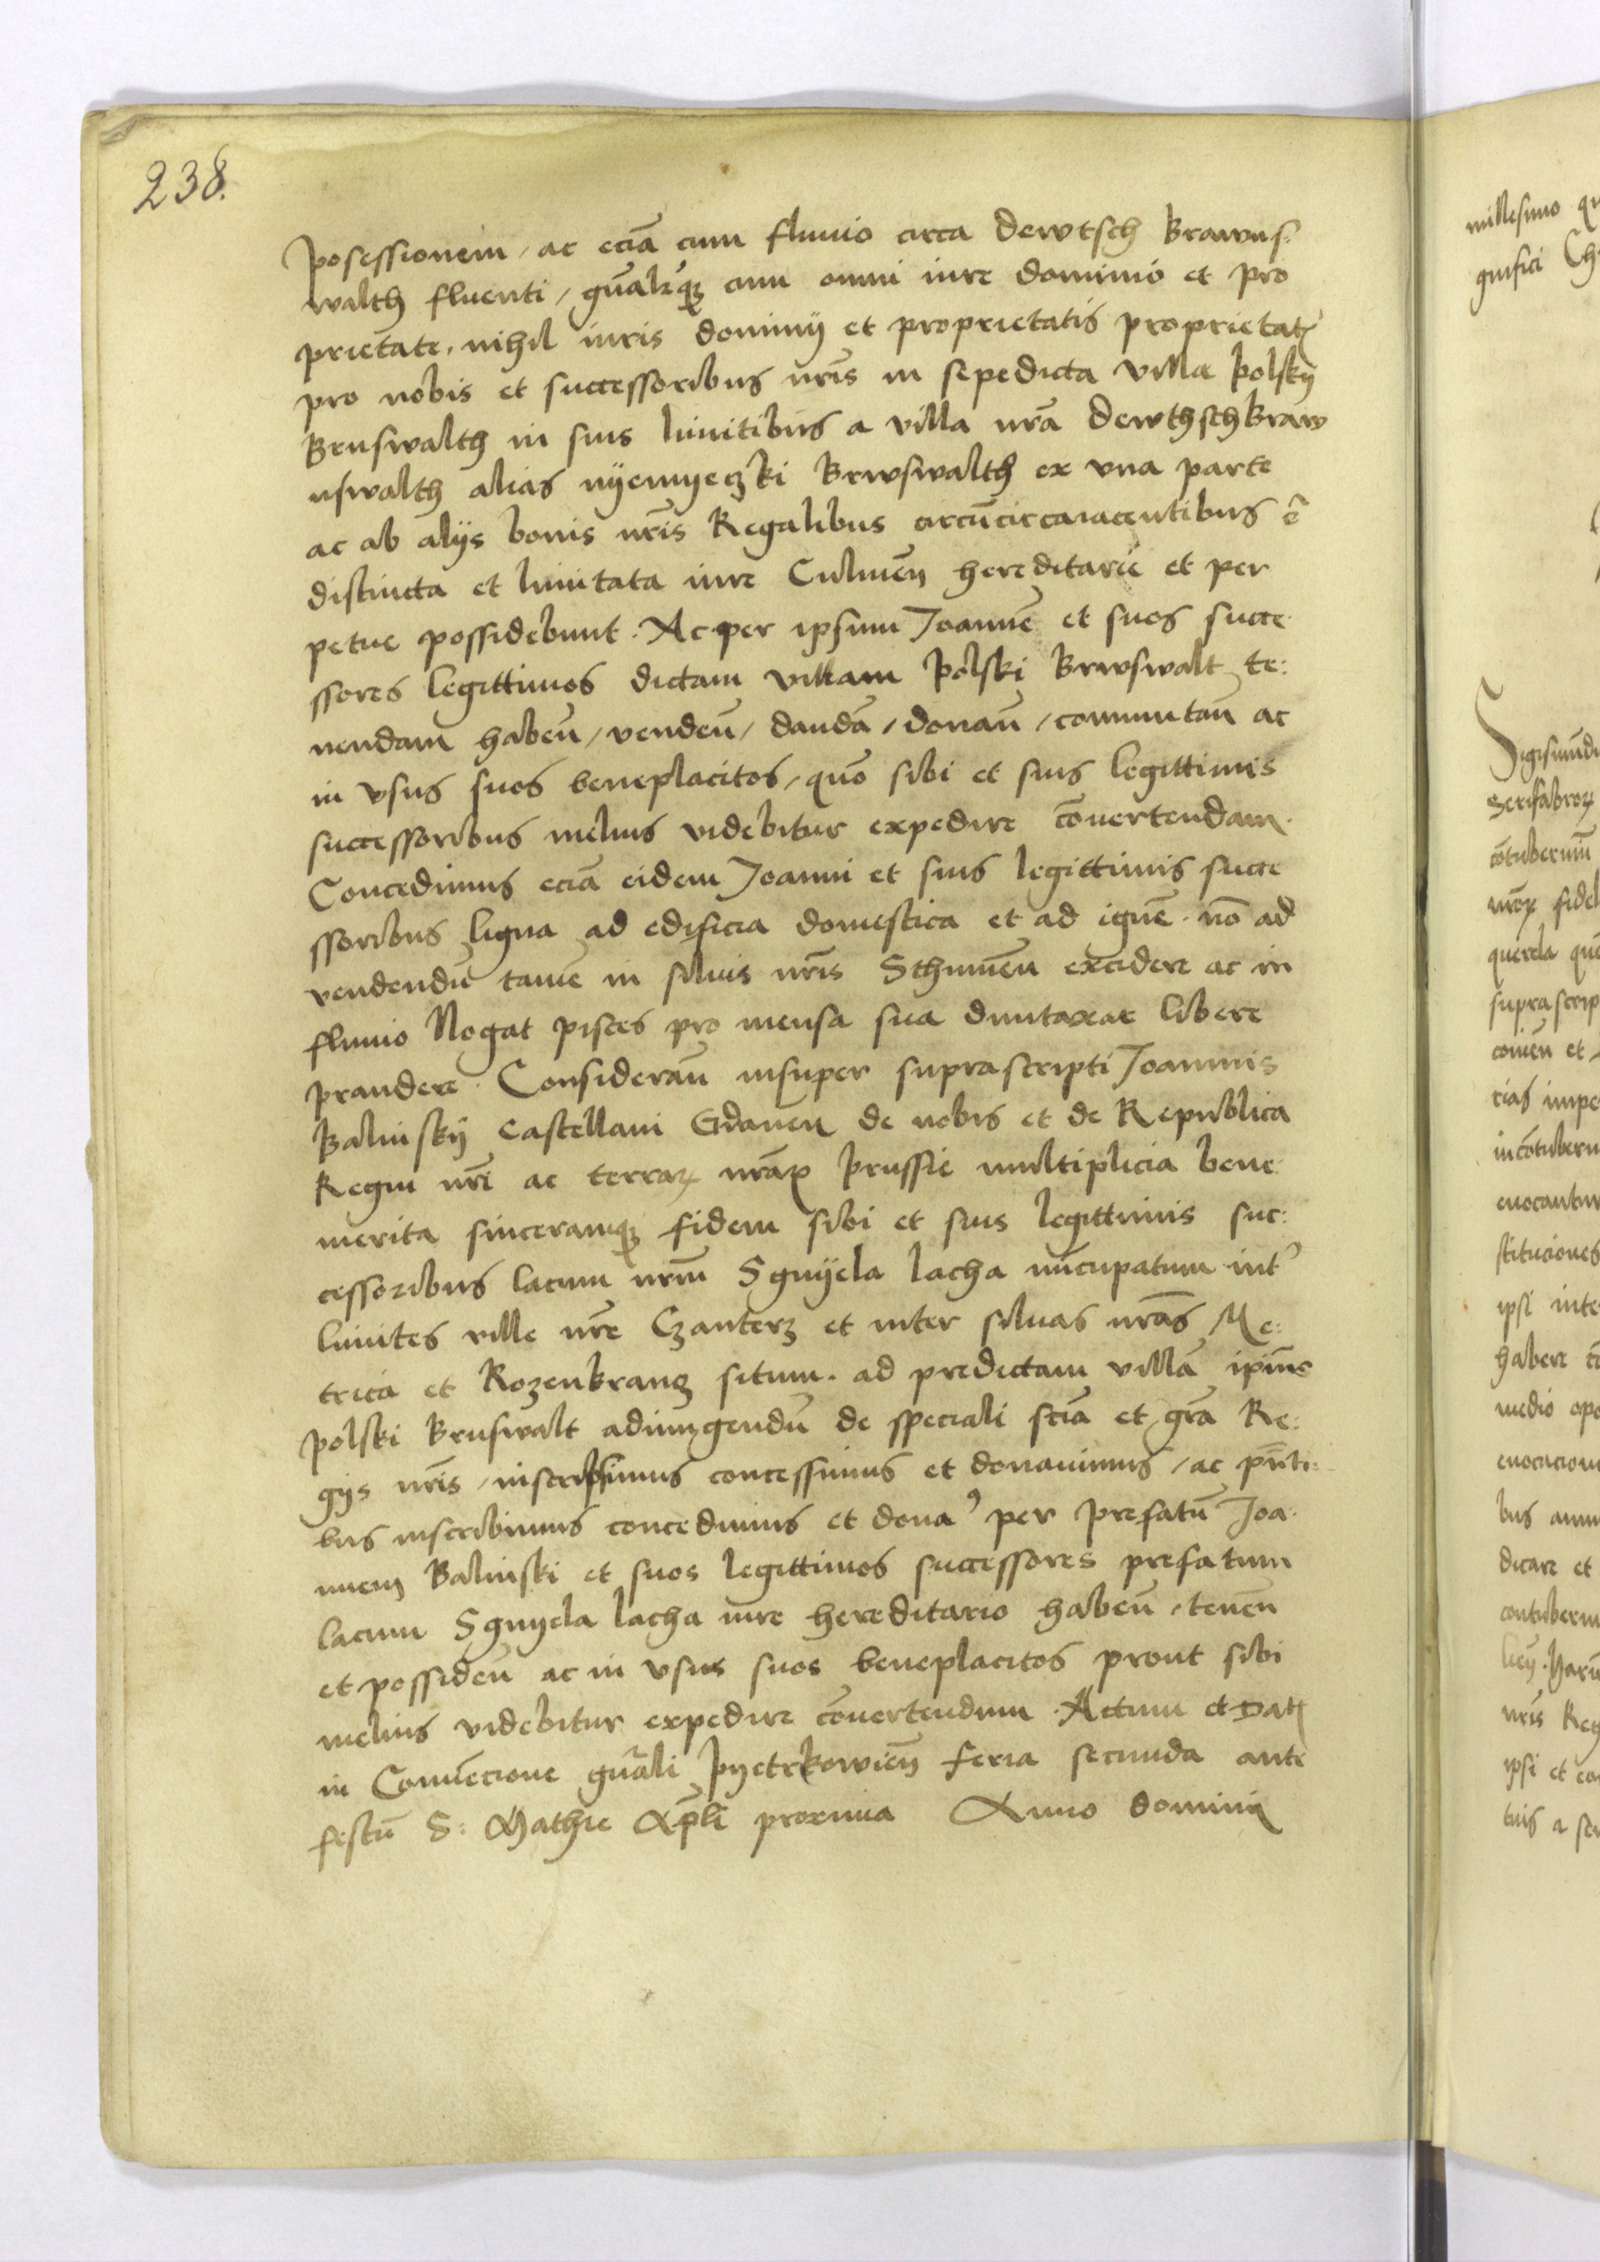 238.
posessionem, ac eciā cum fluuio circa dewtsch Brawns
walth fluenti, gn̄alr̄qꝫ cum omni iure dominio et pro
prietate, nihil iuris dominÿ et proprietatis proprietatꝭ
pro nobis et successoribus nr̄is in sepedicta villa polskÿ
Bruswalth in suis limitibus a villa nr̄a dewthschbraw
nswalth alias nÿemÿeczki Brwswalth ex vna parte
ac ab alÿs bonis nr̄is Regalibus circūcircaiacentibus ē
distincta et limitata iure Culmeñ hereditarie et per
petue possidebunt. Ac per ipsum Joannē et suos succe
ssores legittimos dictam villam polski Brwswalt te:
nendam habeñ, vendeñ, dandā, donañ, commutañ ac
in vsus suos beneplacitos, quō sibi et suis legittimis
successoribus melius videbitur expedire cōuertendam.
Concedimus eciā eidem Joanni et suis legittimis succe
ssoribus ligna ad edificia domestica et ad ignē. nō ad
vendendū tamē in siluis nr̄is Sthumeñ excidere ac in
fluuio Nogat pisces pro mensa sua duntaxat libere
prandere. Considerañ insuper suprascripti Joannis
Balinskÿ Castellani Gdaneñ de nobis et de Republica
Regni nr̄i ac terrarꝝ nr̄arꝝ prussie multiplicia bene
merita sinceramqꝫ fidem sibi et suis legittimis suc:
cessoribus lacum nr̄um Sgnÿela lacha nūcupatum int̄
limites ville nr̄e Czanterz et inter siluas nr̄as Me:
tricia et Rozenkrancz situm. ad predictam villā ip̄ius
polski Bruswalt adiungendū de speciali sciā et gr̄a Re:
gijs nr̄is, inscripsimus concessimus et donauimus, ac pn̄ti:
bus inscribimus concedimus et donaꝰ per prefatū Joa
nnem Balinski et suos legittimos successores prefatum
lacum Sgnÿela lacha iure hereditario habeñ, teneñ
et possideñ ac in vsus suos beneplacitos prout sibi
melius videbitur expedire cōuertendum. Actum et Datꝭ
in Conuēcione gn̄ali pyetrkowieñ feria secunda ante
festū S: Mathie Ap̄li proxima Anno domini
millesimo
gnifici
Sigismund
cōtuberniū
querela
suprascrip
et
rias impe
euocantur
stituciones
ipsi inte
habere
medio
bus
dicare et
contuberni
nr̄is Reg
ipsi et
tuis a